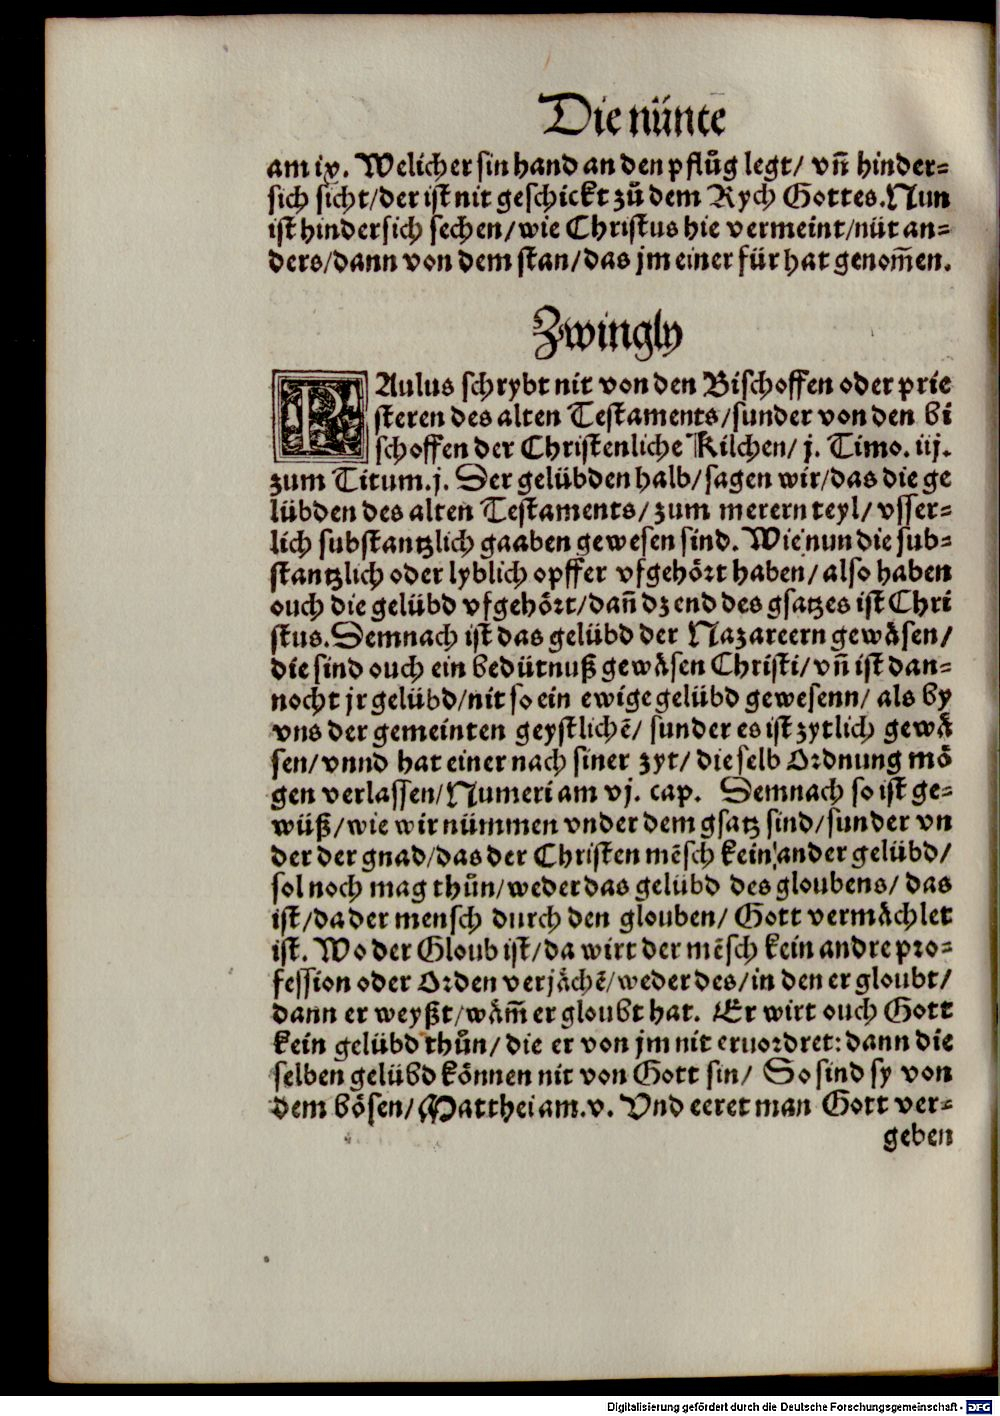 Die nünte
am ix. Welicher sin hand an den pflůg legt/ vñ hinder⸗
sich sicht/der ist nit geschickt zů dem Rych Gottes. Nun
ist hindersich sechen/wie Christus hie vermeint/nüt an⸗
ders/dann von dem stan/das jm einer für hat genom̄en.
Zwingly
PAulus schrybt nit von den Bischoffen oder prie
steren des alten Testaments/sunder von den bi
schoffen der Christenliche Kilchen/ j. Timo. iij.
zum Titum. j. Der gelübden halb/sagen wir/das die ge
lübden des alten Testaments/ zum merern teyl/ vsser⸗
lich substantzlich gaaben gewesen sind. Wie nun die sub⸗
stantzlich oder lyblich opffer vfgehört haben/ also haben
ouch die gelübd vfgehört/dañ dz end des gsatzes ist Chri
stus. Demnach ist das gelübd der Nazareern gewäsen/
die sind ouch ein bedütnuß gewäsen Christi/ vñ ist dan⸗
nocht jr gelübd/nit so ein ewige gelübd gewesenn/ als by
vns der gemeinten geystlichē/ sunder es ist zytlich gewä
sen/ vnnd hat einer nach siner zyt/ die selb Ordnung mö
gen verlassen/Numeri am vj. cap. Demnach so ist ge⸗
wüß/wie wir nümmen vnder dem gsatz sind/sunder vn
der der gnad/das der Christen mēsch kein ander gelübd/
sol noch mag thůn/weder das gelübd des gloubens/ das
ist/da der mensch durch den glouben/ Gott vermächlet
ist. Wo der Gloub ist/da wirt der mēsch kein andre pro⸗
fession oder Orden verjächē/weder des/in den er gloubt/
dann er weyßt/wäm̄ er gloubt hat. Er wirt ouch Gott
kein gelübd thůn/ die er von jm nit eruordret: dann die
selben gelübd können nit von Gott sin/ So sind sy von
dem bösen/ Matthei am. v. Vnd eeret man Gott ver⸗
geben
Digitalisierung gefördert durch die Deutsche Forschungsgemeinschaft - DFG